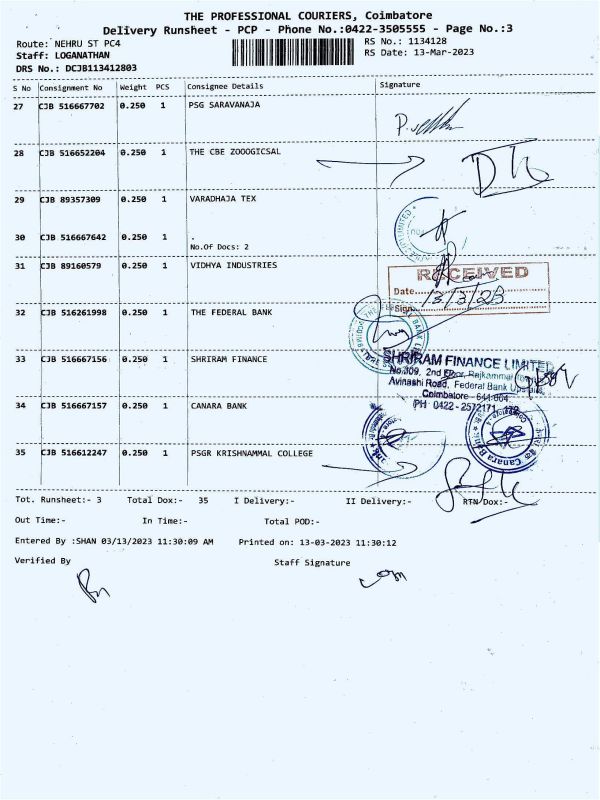 THE PROFESSIONAL COURIERS, Coimbatore
Delivery Runsheet - PCP - Phone No.:0422-3505555 - Page No.:3
Route: NEHRU ST PC4
RS No.: 1134128
Staff: LOGANATHAN
RS Date: 13-Mar-2023
DRS No.: DCJB113412803
S No Consignment No Weight PCS Consignee Details Signature
27 CJB 516667702 0.250 1 PSG SARAVANAJA
28 CJB 516652204 0.250 1 THE CBE ZOOOGICSAL
29 CJB 89357309 0.250 1 VARADHAJA TEX
30 CJB 516667642 0.250 1 .
No.Of Docs: 2
31 CJB 89160579 0.250 1 VIDHYA INDUSTRIES
RECEIVED
Date 13/3/23
Sign
32 CJB 516261998 0.250 1 THE FEDERAL BANK
33 CJB 516667156 0.250 1 SHRIRAM FINANCE
SHRIRAM FINANCE LIMITED
No.309, 2nd Floor, Rajkammal
Avinashi Road, Federal Bank Upstairs
Coimbatore - 641 004
PH 0422 - 2572171
34 CJB 516667157 0.250 1 CANARA BANK
Canara
35 CJB 516612247 0.250 1 PSGR KRISHNAMMAL COLLEGE
Tot. Runsheet:- 3 Total Dox:- 35 I Delivery:- II Delivery:- RTN Dox:-
Out Time:- In Time:- Total POD:-
Entered By :SHAN 03/13/2023 11:30:09 AM Printed on: 13-03-2023 11:30:12
Verified By Staff Signature